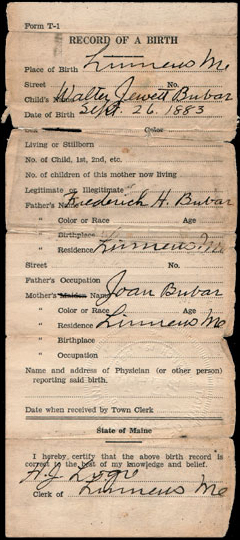 Form T-1
RECORD OF A BIRTH
Place of Birth Linneus Me
Street No.
Child's Name Walter Jewett Bubar
Date of Birth Sept. 26. 1883
Color
Living or Stillborn
No. of Child, 1st, 2nd, etc.
No. of children of this mother now living
Legitimate or Illegitimate
Father's Name Frederick H. Bubar
" Color or Race Age
" Birthplace
" Residence Linneus Me
Street No.
Father's Occupation
Mother's Maiden Name Joan Bubar
" Color or Race Age
" Residence Linneus Me
" Birthplace
" Occupation
Name and address of Physician (or other person)
reporting said birth.
Date when received by Town Clerk
State of Maine
I hereby certify that the above birth record is
correct to the best of my knowledge and belief.
Clerk of Linneus Me